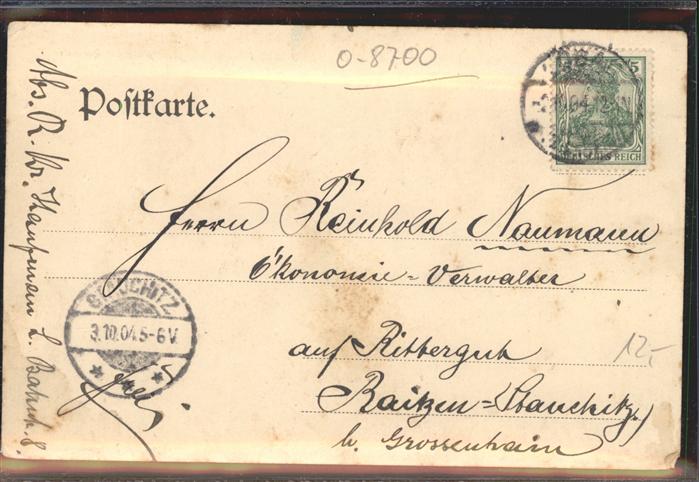 0-8700
Postkarte.
5
DEUTSCHES REICH
Herrn Reinhold Naumann
Ökonomie=Verwalter
auf Rittergut
Raitzen=Stauchitz.
b. Grossenhain
STAUCHITZ
3.10.04.5-6V.
frei
12,-
Abs. R. Kr. L. Bahnh. 8.